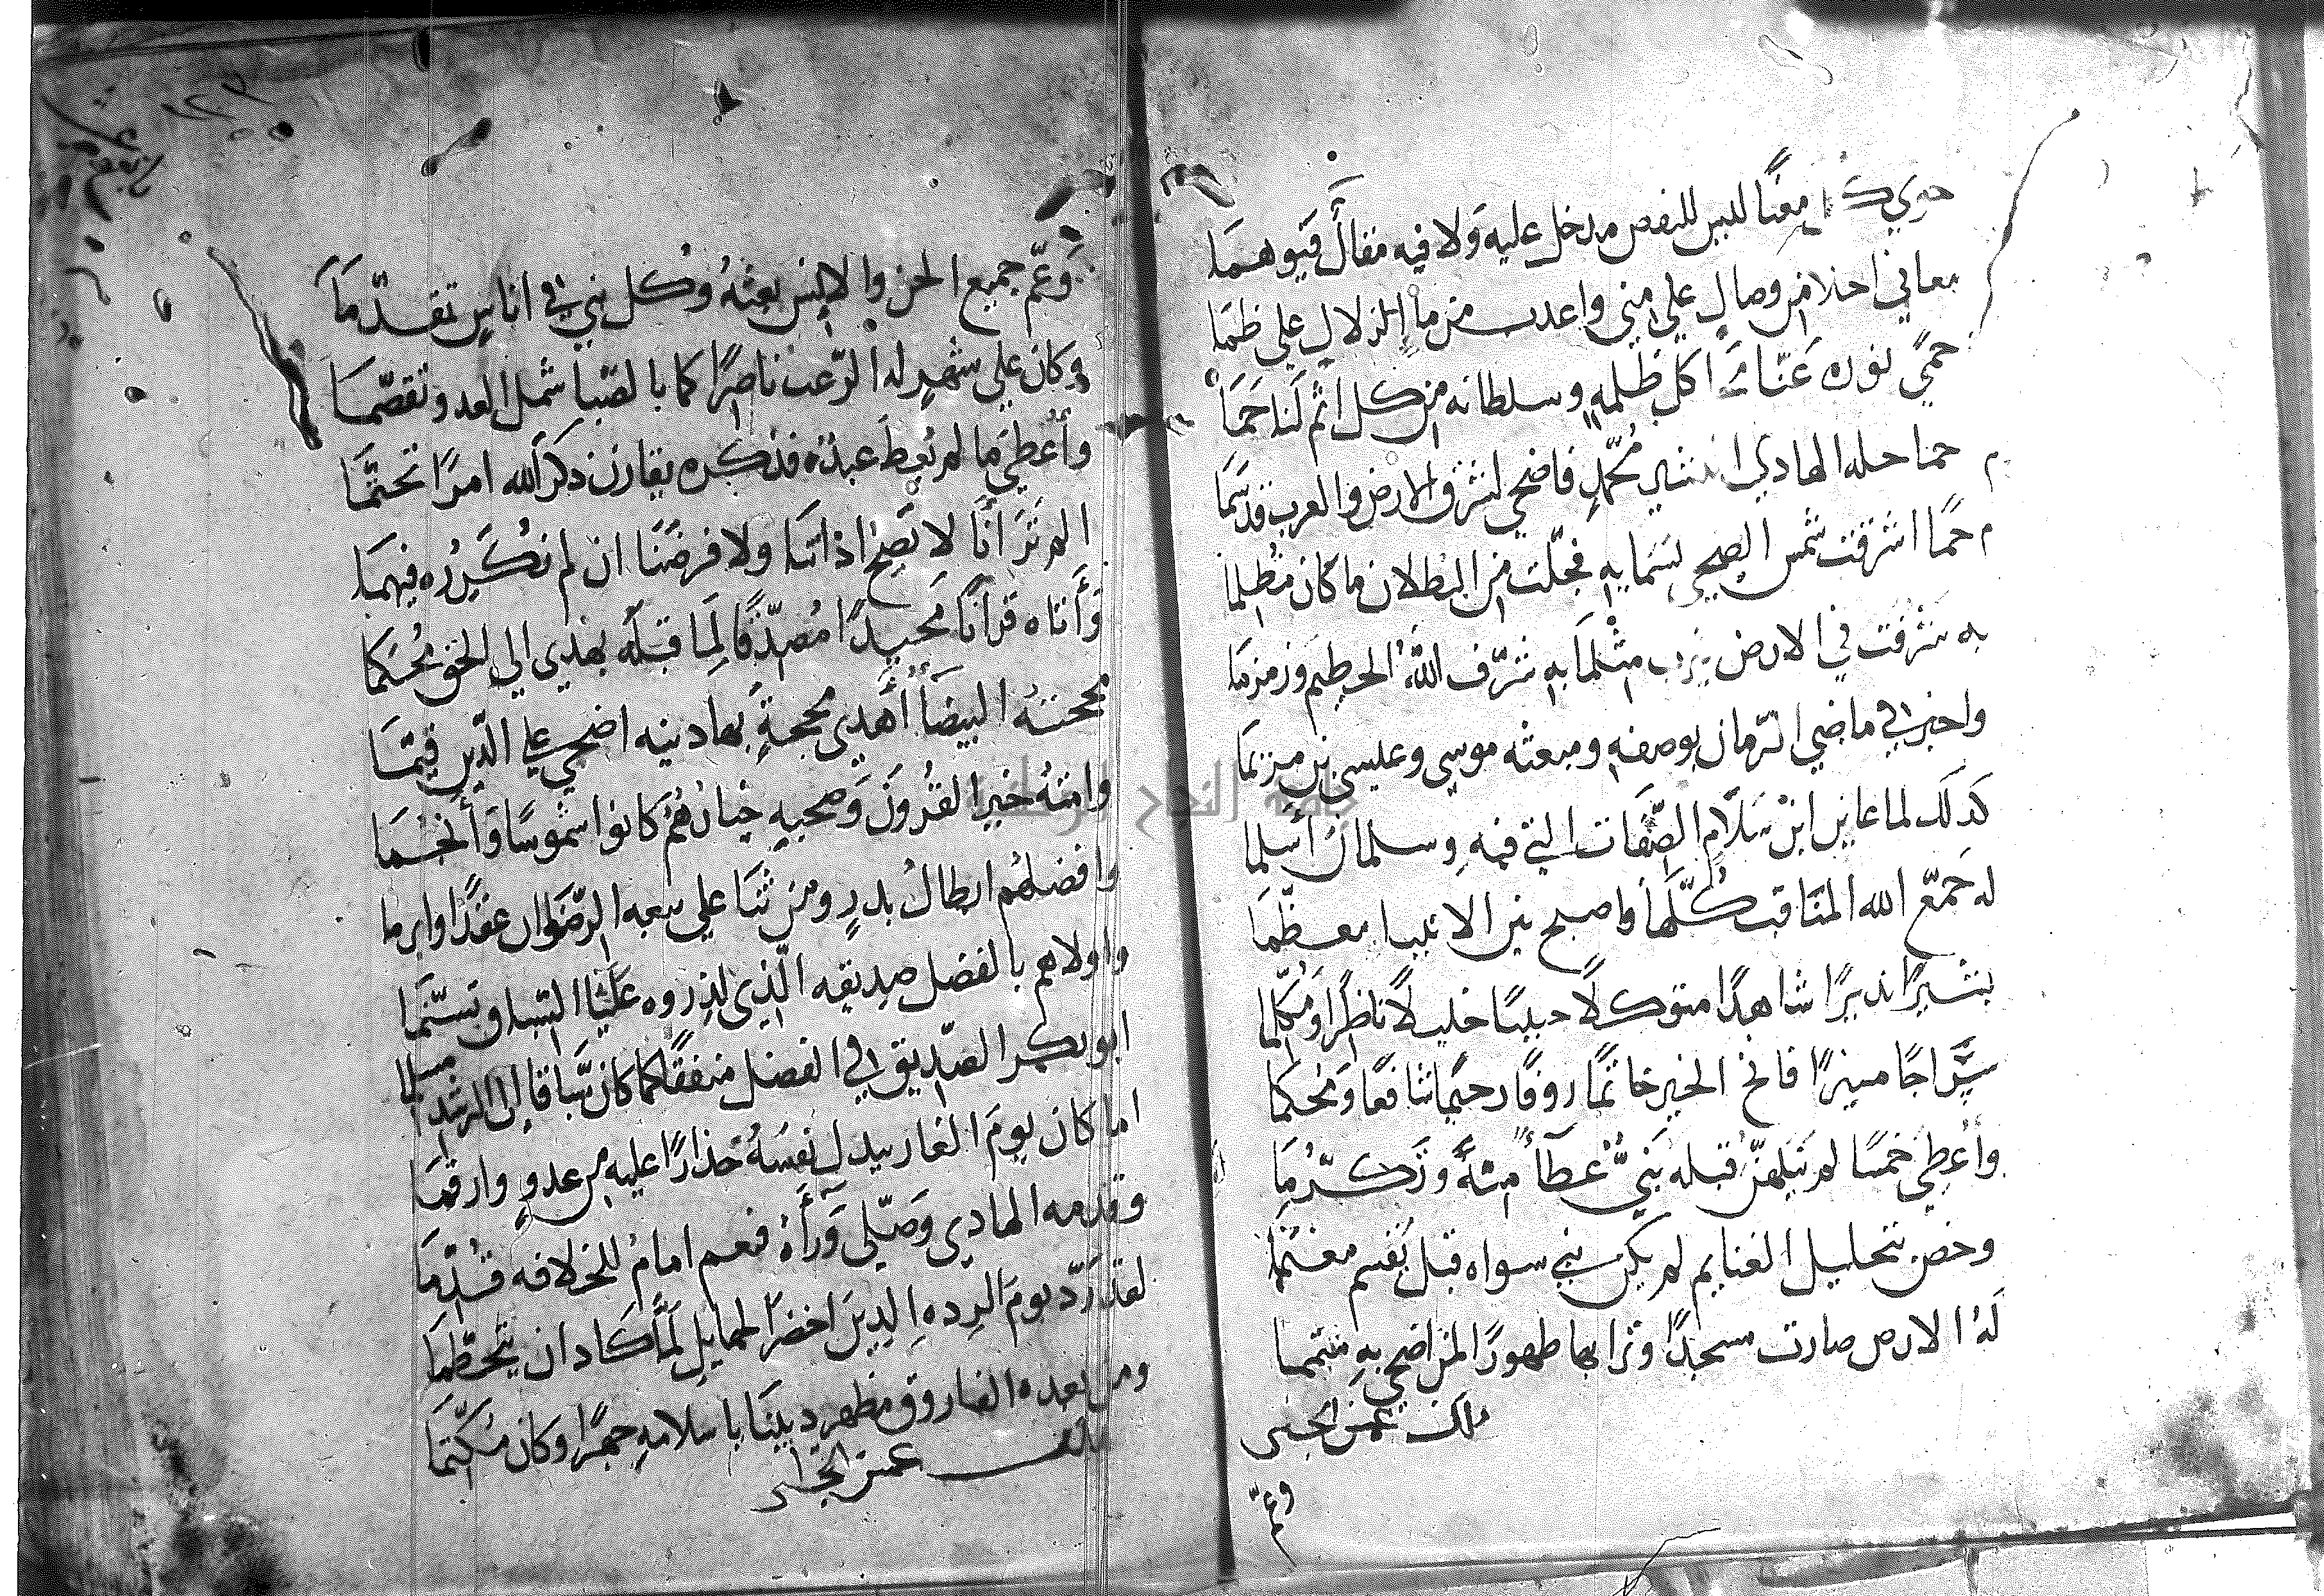 حوي كل معنًا ليس للنقص مدخل عليه وَلا فيه مقالٌ فيوهمَا
معاني احلا من وصالٍ علي مني واعدب من ماءِ الزلالِ علي ظمَا
حميً نوره عَنّا كل ظلمه وسلطانه من كل اثمٍ لَنا حمَا
حما حله الهادي البشير محمّدٍ فاضحي لشرق الارض والعرب قد سَمَا
حمًا اشرقت شمس الضحي بسَمايهِ فجلّت من البطلان ما كان مظلما
به شرفت في الارض يثرب مثْلمَا به شرّف اللهُ الحطيم وزمزمَا
واخبر في ماضي الزمان بوصفهِ ومبعثه موسي وعيسي بن مريمَا
كذلك لما عاين ابْن سَلامٍ الصّفَات التي فيهِ وسلمانُ أسلما
له جَمّعَ الله المنَاقبَ كُلّهَا واصبح بين الانبيا معظّمَا
بشيرًا نديرًا شاهدًا متوكلًا حبيبًا خليلًا ناظرًا ومُكلما
سِرَاجًا منيرًا فاتح الخير خاتمًا روفًا رحيمًا شافعًا وَمحكما
وأعطي خمسًا لم ينلهنّ قبله نبيٌّ عطآءً منهُ وَتكرّمَا
وخص بتحليل الغنايم لم يكن نبي سواه قبل يقسم مغنمَا
لهُ الارض صارت مسجدًا وترابها طهورًا لمن اضحي بهِ متيمما
وعمّ
وَعمّ جميع الجن والانس بعثهُ وكل نبي في اناسٍ تقدّمَا
وكان علي شهرٍ له الرّعب ناصرًا كما بالصَبا شمل العدو تقصّمَا
وأُعطي مَا لم يُعطَ عبدٌ فذكره يقارن ذكر الله امرًا تحتّمَا
الم تَرَ أنّا لا تَصح اذاننَا ولا فرضنَا ان لم نكَررُه فيهمَا
وَأتاه قرآنًا مجيدًا مُصدّقًا لِمَا قبلَه يهدي الي الحق مُحكما
محجتهُ البيضآءُ أهدي محجةٍ بها دينه اضحي علي الدّين قيّمَا
وامتهُ خير القرُونَ وَصحبهِ خيارُ همُ كانوا شموسًا وَأنجُمَا
وافضلهُم ابطالُ بدرٍ ومن ثنَا علي بيعه الرّضوَان عقدًا وابرما
واولاهم بالفضل صديقه الّذي لذروه عَليَا السّباق تسنّمَا
ابو بكر الصّديق في الفضل منفقًا كما كان سَبّاقًا الي الرشد مسلما
اما كان يومَ الغار يبدل نفسَهُ حذارًا عليه من عدوٍ وارقمَا
وقدمه الهادي وَصَلّي وَرأه فنعم امامٌ للخلافه قُدّمَا
لقد رَدّ يومَ الرده الدينَ اخضرَ الحمايل لَمّا كاد ان يتحطّمَا
ومن بعده الفاروق مظهر ديننَا باسلامهِ جهرًا وكان مُكتّمَا